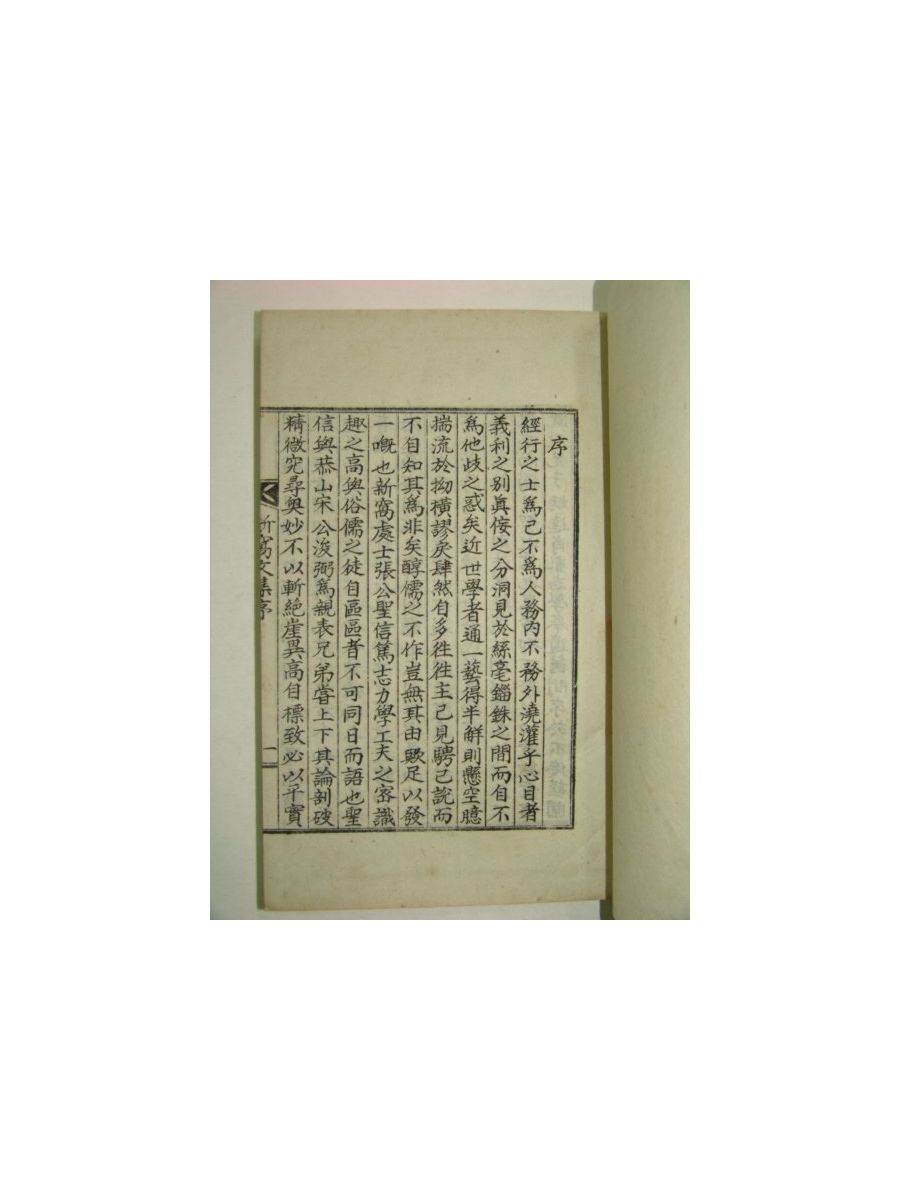 序
經行之士爲己不爲人務內不務外澆灌乎心目者
義利之別眞侫之分洞見於絲毫錙銖之間而自不
爲他歧之惑矣近世學者通一藝得半觧則懸空臆
揣流於拗橫謬戾肆然自多徃徃主己見騁己說而
不自知其爲非矣醇儒之不作豈無其由歟足以發
一嘅也新窩處士張公聖信篤志力學工夫之密識
趣之高與俗儒之徒自區區者不可同日而語也聖
信與恭山宋公浚弼爲親表兄弟嘗上下其論剖破
精微究尋奧妙不以斬絶崖異高自標致必以平實
新窩文集序
一